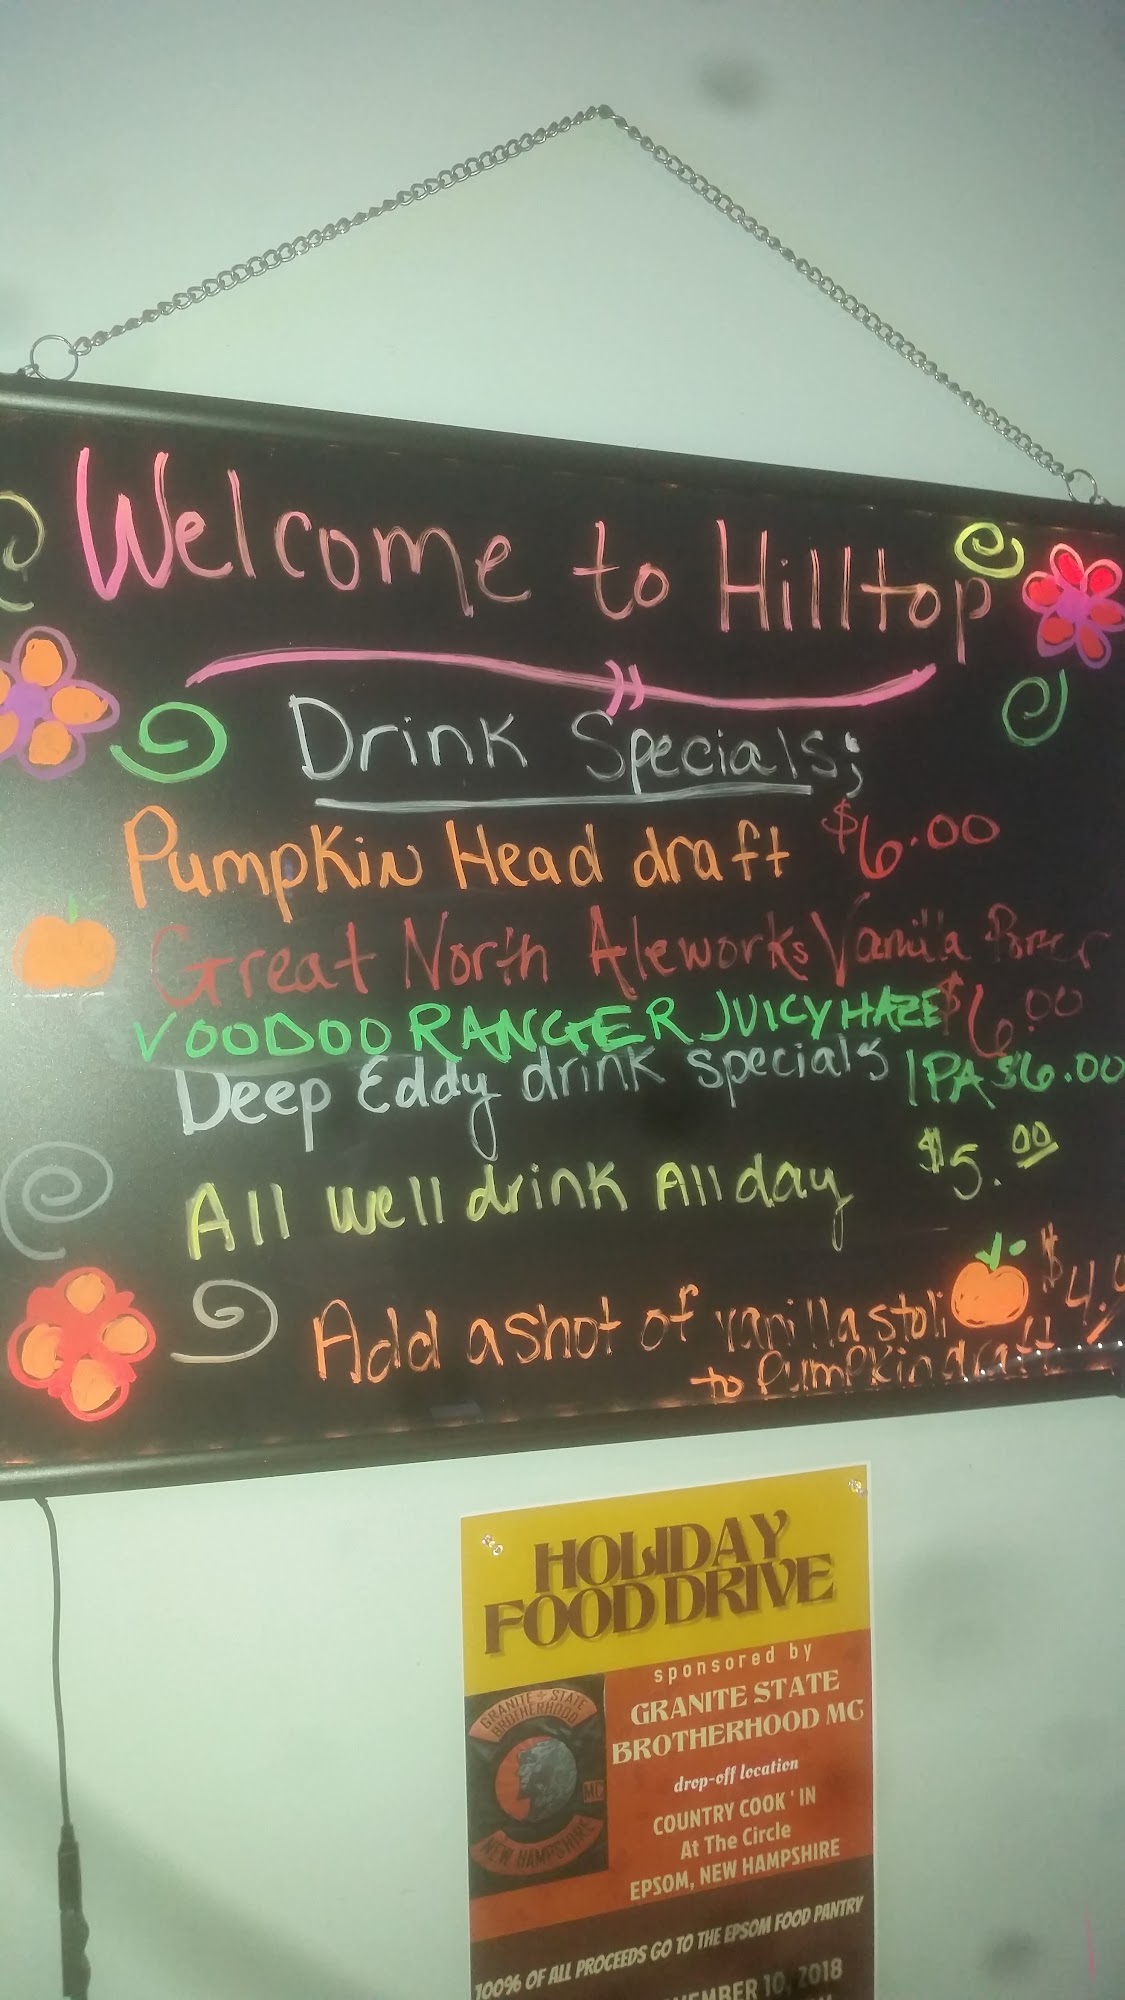 Welcome to Hilltop
Drink Specials;
Pumpkin Head draft $6.00
Great North Aleworks Vanilla Porter
$6.00
VOODOO RANGER JUICY HAZE
IPA $6.00
Deep Eddy drink specials
$5.00
All well drink All day
Add a shot of vanilla stoli
to Pumpkin draft
HOLIDAY
FOOD DRIVE
sponsored by
GRANITE STATE
BROTHERHOOD MC
GRANITE STATE
BROTHERHOOD
MC
NEW HAMPSHIRE
drop-off location
COUNTRY COOK ' IN
At The Circle
EPSOM, NEW HAMPSHIRE
100% OF ALL PROCEEDS GO TO THE EPSOM FOOD PANTRY
10, 2018